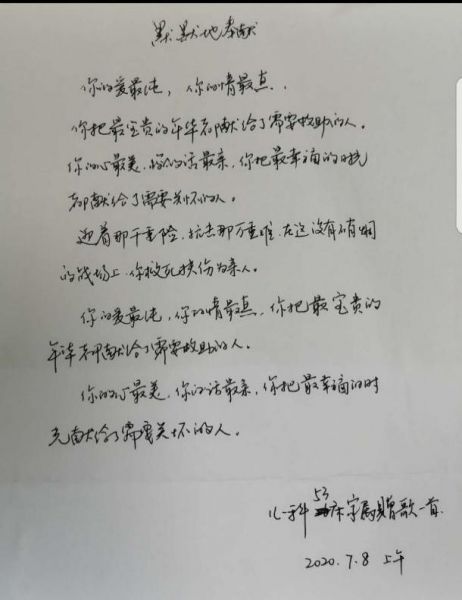 默默地奉献
你的爱最纯，你的情最真．．
你把最宝贵的年华都献给了需要救助的人。
你的心最美，你的话最亲，你把最幸福的时光
都献给了需要关怀的人。
迎着那千重险，抗击那万重难，在这没有硝烟
的战场上，你救死扶伤为亲人。
你的爱最纯，你的情最真，你把最宝贵的
年华都献给了需要救助的人。
你的心最美，你的话最亲，你把最幸福的时
光献给了需要关怀的人。
儿一科53床家属赠歌一首
2020.7.8 上午